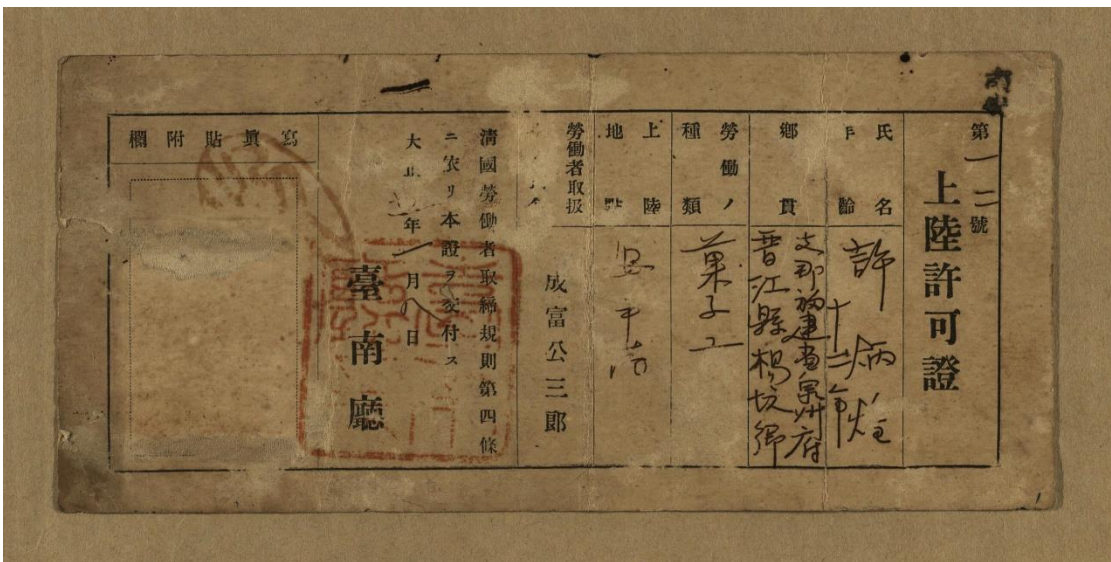 第一二號
上陸許可證
氏名
年齡
許炳烇
十二年
鄉貫
支那福建省泉州府
晋江縣楊坑鄉
勞働ノ
種類
菓子工
上陸
地點
安平港
勞働者取扱
成富公三郎
清國勞働者取締規則第四條
ニ依リ本證ヲ交付ス
大正 年一月八日
臺南廳
寫眞貼附欄